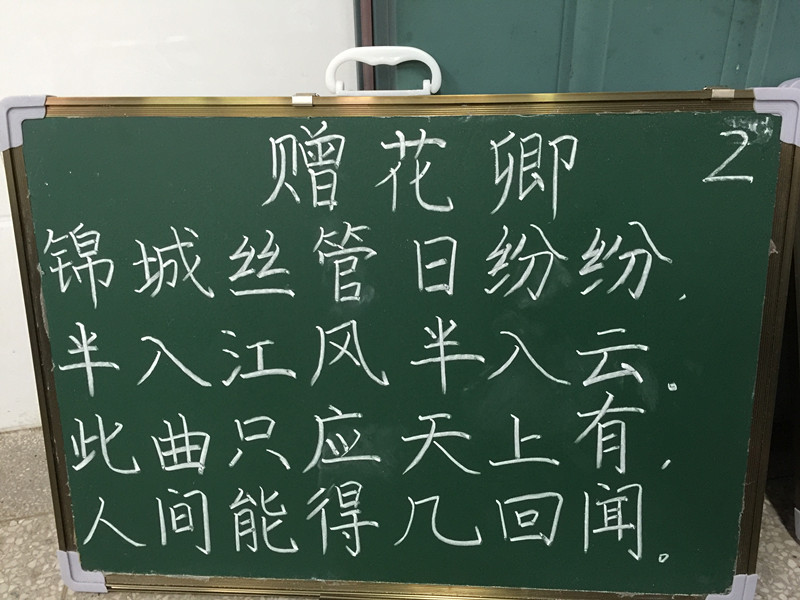 赠花卿 2
锦城丝管日纷纷,
半入江风半入云。
此曲只应天上有,
人间能得几回闻。